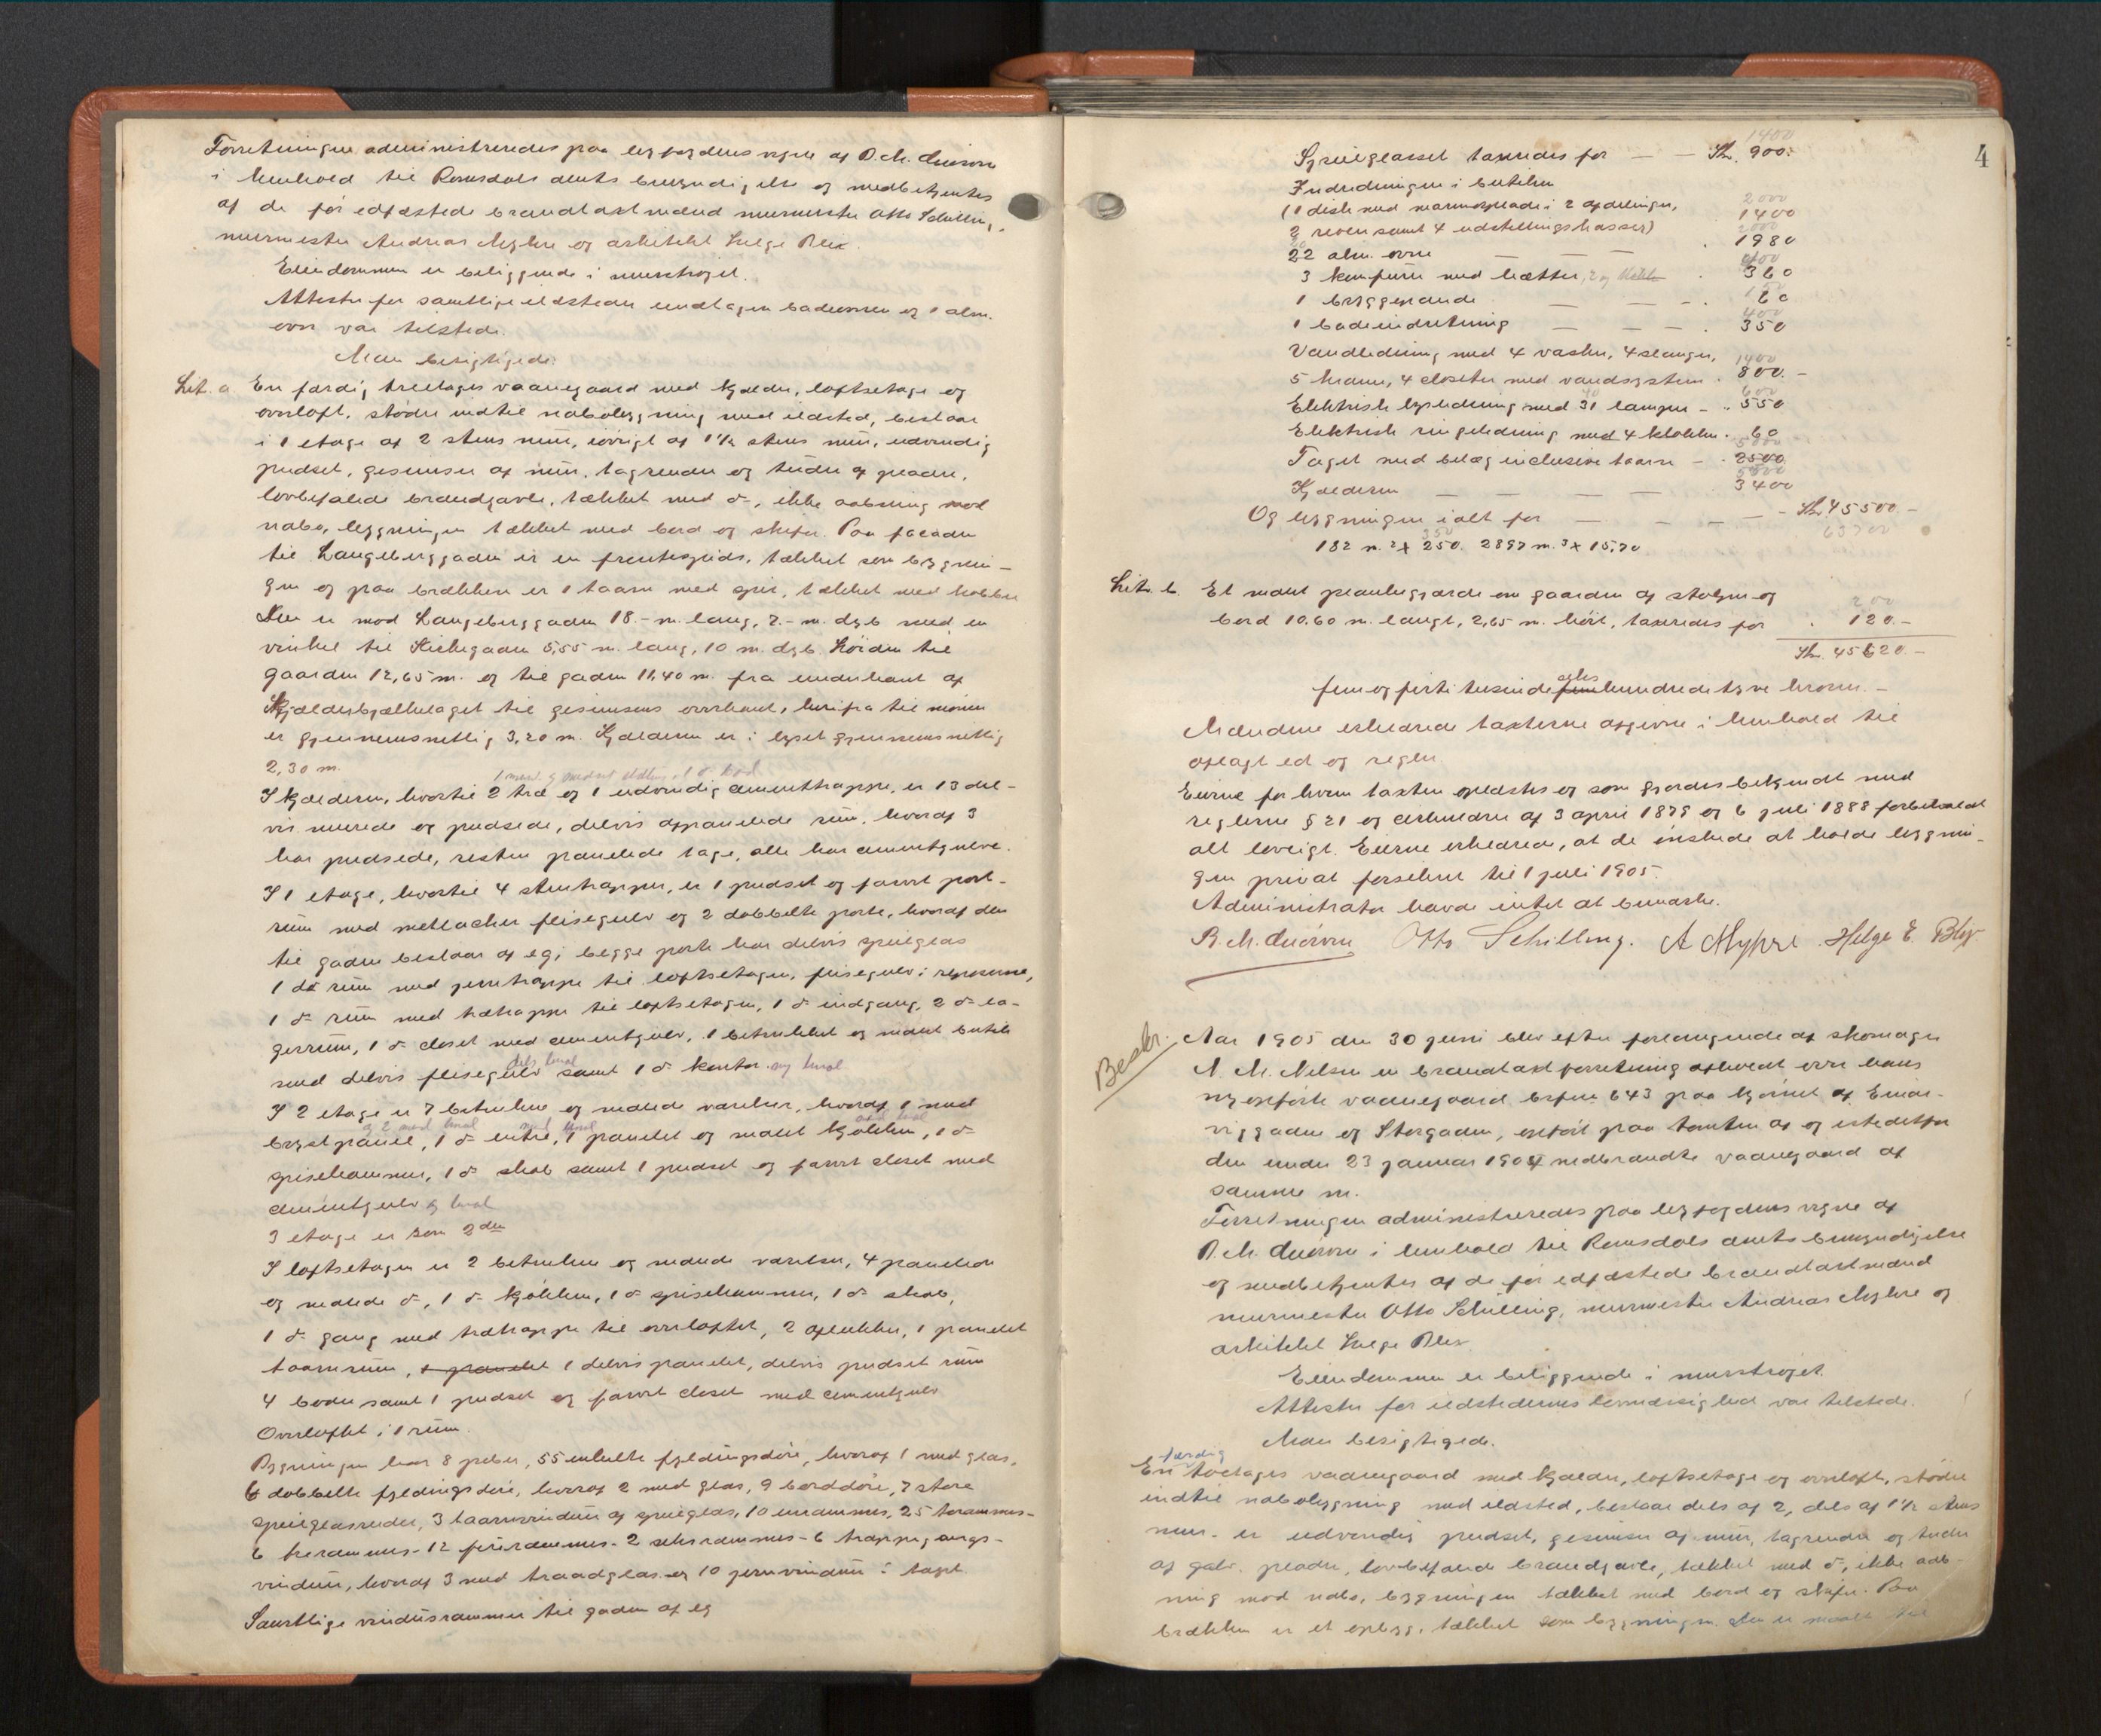 Forretningen administreredes paa byfogdens vegne af D. M.
i henhold til Romsdals amts bemyndigelse og medbetjentes
af de før edfæstede brandtaxtmænd murmester Otto Schilling,
murmester Andreas Myhre og arkitekt Helge Blix.
Eiendommen er beliggende i murstrøget.
Attester for samtlige ildsteder undtagen badeovnen og 1 alm.
ovn var tilstede.
Man besigtigede:
Lit. a. En færdig treetages vaaningsgaard med kjælder, loftsetage og
overloft, støder indtil nabobygning med ildsted, bestaar
i 1 etage af 2 stens mur, iøvrigt af 1½ stens mur, udvendig
pudset, gesimser af mur, tagrender og tuder af
lovbefalede brandgavle, tækket med do, ikke aabning mod
nabo, bygningen tækket med bord og skifer. Paa facaden
til Langeberggaden er en frontespids, tækket som bygnin-
gen og paa brækken er 1 taarn med spir, tækket med kobber
Den er mod Langeberggaden 18.- m. lang, 7.- m. dyb med en
vinkel til Kirkegaden 5,55 m. lang, 10 m. dyb. Høiden til
gaarden 12,65 m. og til gaden 11,40 m. fra underkant af
Kjælderbjælkelaget til gesimsens overkant, herifra til mønen
er gjennemsnitlig 3,20 m. Kjælderen er i lyset gjennemsnitlig
2,30 m.
I kjælderen, hvortil 2 træ og 1 udvendig cementtrappe, er 13 del-
vis murede og pudsede, delvis afpanelede rum, hvoraf 3
har pudsede, resten panelede tage, alle har cementgulve.
I 1 etage, hvortil 4 stentrapper, er 1 pudset og farvet port-
rum med metlacher flisegulv og 2 dobbelte porte, hvoraf den
til gaden bestaar af eg; begge porte har delvis speilglas
1 do rum med jerntrappe til loftsetagen, flisegulv i reposerne,
1 do rum med trætrappe til loftsetagen, 1 do indgang, 2 do la-
gerrum, 1 do closet med cementgulv, 1 betrukket og malet butik
med delvis flisegulv samt 1 do kontor
I 2 etage er 7 betrukne og malede værelser, hvoraf 1 med
brystpanel, 1 do entre, 1 panelet og malet kjøkken, 1 do
spisekammer, 1 do skab samt 1 pudset og farvet closet med
cementgulv
3 etage er som 2den
I loftsetagen er 2 betrukne og malede værelser, 4 panelede
og malede do, 1 do kjøkken, 1 do spisekammer, 1 do skab,
1 do gang med trætrappe til overloftet, 2 aflukker, 1 panelet
taarnrum, 1 panelet 1 delvis panelet, delvis pudset rum
4 boder samt 1 pudset og farvet closet med cementgulv
Overloftet i 1 rum.
Bygningen har 8 piber, 55 enkelte fyldingsdøre, hvoraf 1 med glas,
6 dobbelte fyldingsdøre, hvoraf 2 med glas, 9 borddøre, 7 store
speilglasruder, 3 taarnvinduer af speilglas, 10 enrammes, 25 torammes-
6 trerammes- 12 firerammes- 2 seksrammes- 6 trappegangs-
vinduer, hvoraf 3 med traadglas og 10 jernvinduer i taget
Samtlige vinduesrammer til gaden af eg
4
1400
Speilglasset taxeredes for — — Kr. 900.-
Indredningen i butiken
(1 disk med marmorplade i 2 afdelinger, 2000
2 reoler samt 4 udstillingskasser) 1400
22 alm. ovne — — — . 1980
3 komfurer med hætter . 360
1 bryggepande — — — . 60
1 badeindretning — — — . 350
Vandledning med 4 vasker, 4 slanger, 1400
5 kraner, 4 closeter med vandsystem . 800.-
Elektrisk lysledning med 31 lamper - .. 550
Elektrisk ringeledning med 4 klokker . 60
Taget med belæg inclusive taarn — . 2500
Kjælderen — — — — 3400
Og bygningen ialt for — — — — Kr. 45500.-
63700
350
182 m.² x 250. 2897 m.³ x 15,70
Lit. b. Et malet plankegjærde om gaarden af stolper og 200
bord 10,60 m. langt, 2,65 m. høit, taxeredes for . 120.-
Kr. 45620.-
fem og firti tusinde fem seks hundrede tyve kroner.-
Mændene erklærede taxterne afgivne i henhold til
aflagt ed og regler.
Eierne for hvem taxten oplæstes og som gjordes bekjendt med
reglerne § 21 og cirkulærer af 3 april 1879 og 6 juli 1888 forbeholdt
alt lovligt. Eierne erklærer, at de ønskede at holde bygnin-
gen privat forsikret til 1 juli 1905.
Administrator havde intet at bemærke.
Otto Schilling. A Myhre Helge E. Blix
Beskr. Aar 1905 den 30 juni blev efter forlangende af skomager
N. M. Nelsen en brandtaxtforretning afholdt over hans
nyopførte vaaningsgaard br.pol. 643 paa hjørnet af Einar-
viggaden og Storgaden, opført paa tomten af og istedetfor
den under 23 januar 1904 nedbrændte vaaningsgaard af
samme nr.
Forretningen administreredes paa byfogdens vegne af
D. M. i henhold til Romsdals amts bemyndigelse
og medbetjentes af de før edfæstede brandtaxtmænd
murmester Otto Schilling, murmester Andreas Myhre og
arkitekt Helge Blix.
Eiendommen er beliggende i murstrøget.
Attester for ildstedernes lovmæssighed var tilstede.
Man besigtigede.
færdig
En toetages vaaningsgaard med kjælder, loftsetage og overloft, støder
indtil nabobygning med ildsted, bestaar dels af 2, dels af 1½ stens
mur. er udvendig pudset, gesimser af mur, tagrender og tuder
af galv. plader, lovbefalede brandgavle, tækket med do, ikke aab-
ning mod nabo, bygningen tækket med bord og skifer. Paa
brækken er et opbyg, tækket som bygningen. Den er maalt